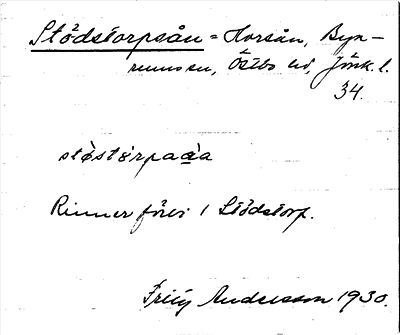 Stödstorpsån = Horsån, Byn-
Östbo hd, Jönk. l.
34.
stöstörpaa̲a
Rinner förbi 1 Stödstorp.
Andersson 1930.